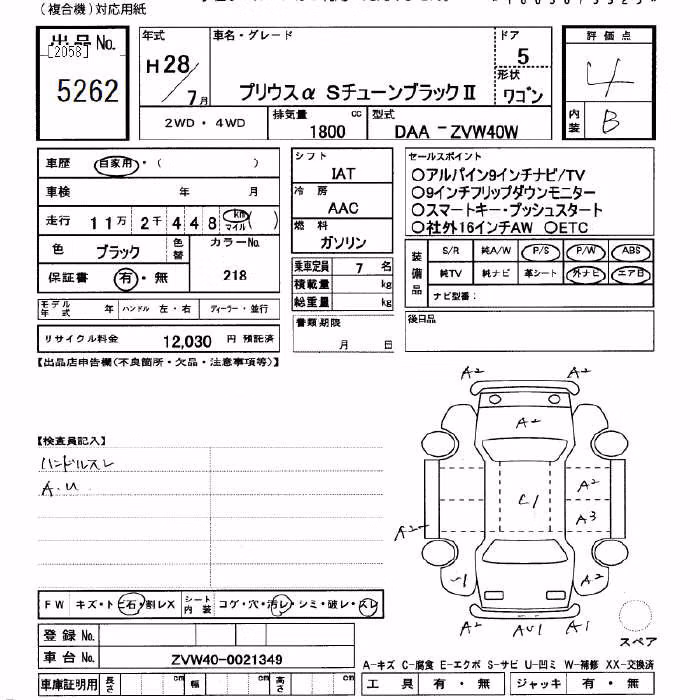 (複合機)対応用紙
出品No.
[2058]
5262
年式
H28/7月
車名・グレード
プリウスα SチューンブラックⅡ
ドア
5
形状
ワゴン
評価点
4
内装
B
2WD・4WD
排気量
1800 cc
型式
DAA-ZVW40W
車歴 自家用・( )
車検 年 月
走行 11万 2千 448 km マイル ( )
色 ブラック 色替 カラーNo.
218
保証書 有・無
モデル年式 年 ハンドル 左・右 ディーラー・並行
リサイクル料金 12,030 円 預託済
シフト
IAT
冷房
AAC
燃料
ガソリン
乗車定員 7 名
積載量 kg
総重量 kg
書類期限
月 日
セールスポイント
○アルパイン9インチナビ/TV
○9インチフリップダウンモニター
○スマートキー・プッシュスタート
○社外16インチAW ○ETC
装備品
S/R 純A/W P/S P/W ABS
純TV 純ナビ 革シート 外ナビ エアB
ナビ型番:
後日品
【出品店申告欄(不良箇所・欠品・注意事項等)】
【検査員記入】
ハンドルスレ
A.U
A2 A2
A2
A2
C1
A3
A2
U1 A2
A2 AU1 A1
スペア
FW キズ・トビ石・割レX シート内装 コゲ・穴・汚レ・シミ・破レ・スレ
登録No.
車台No. ZVW40-0021349
車庫証明用 長さ cm 幅 cm 高さ cm
A-キズ C-腐食 E-エクボ S-サビ U-凹ミ W-補修 XX-交換済
工具 有・無 ジャッキ 有・無